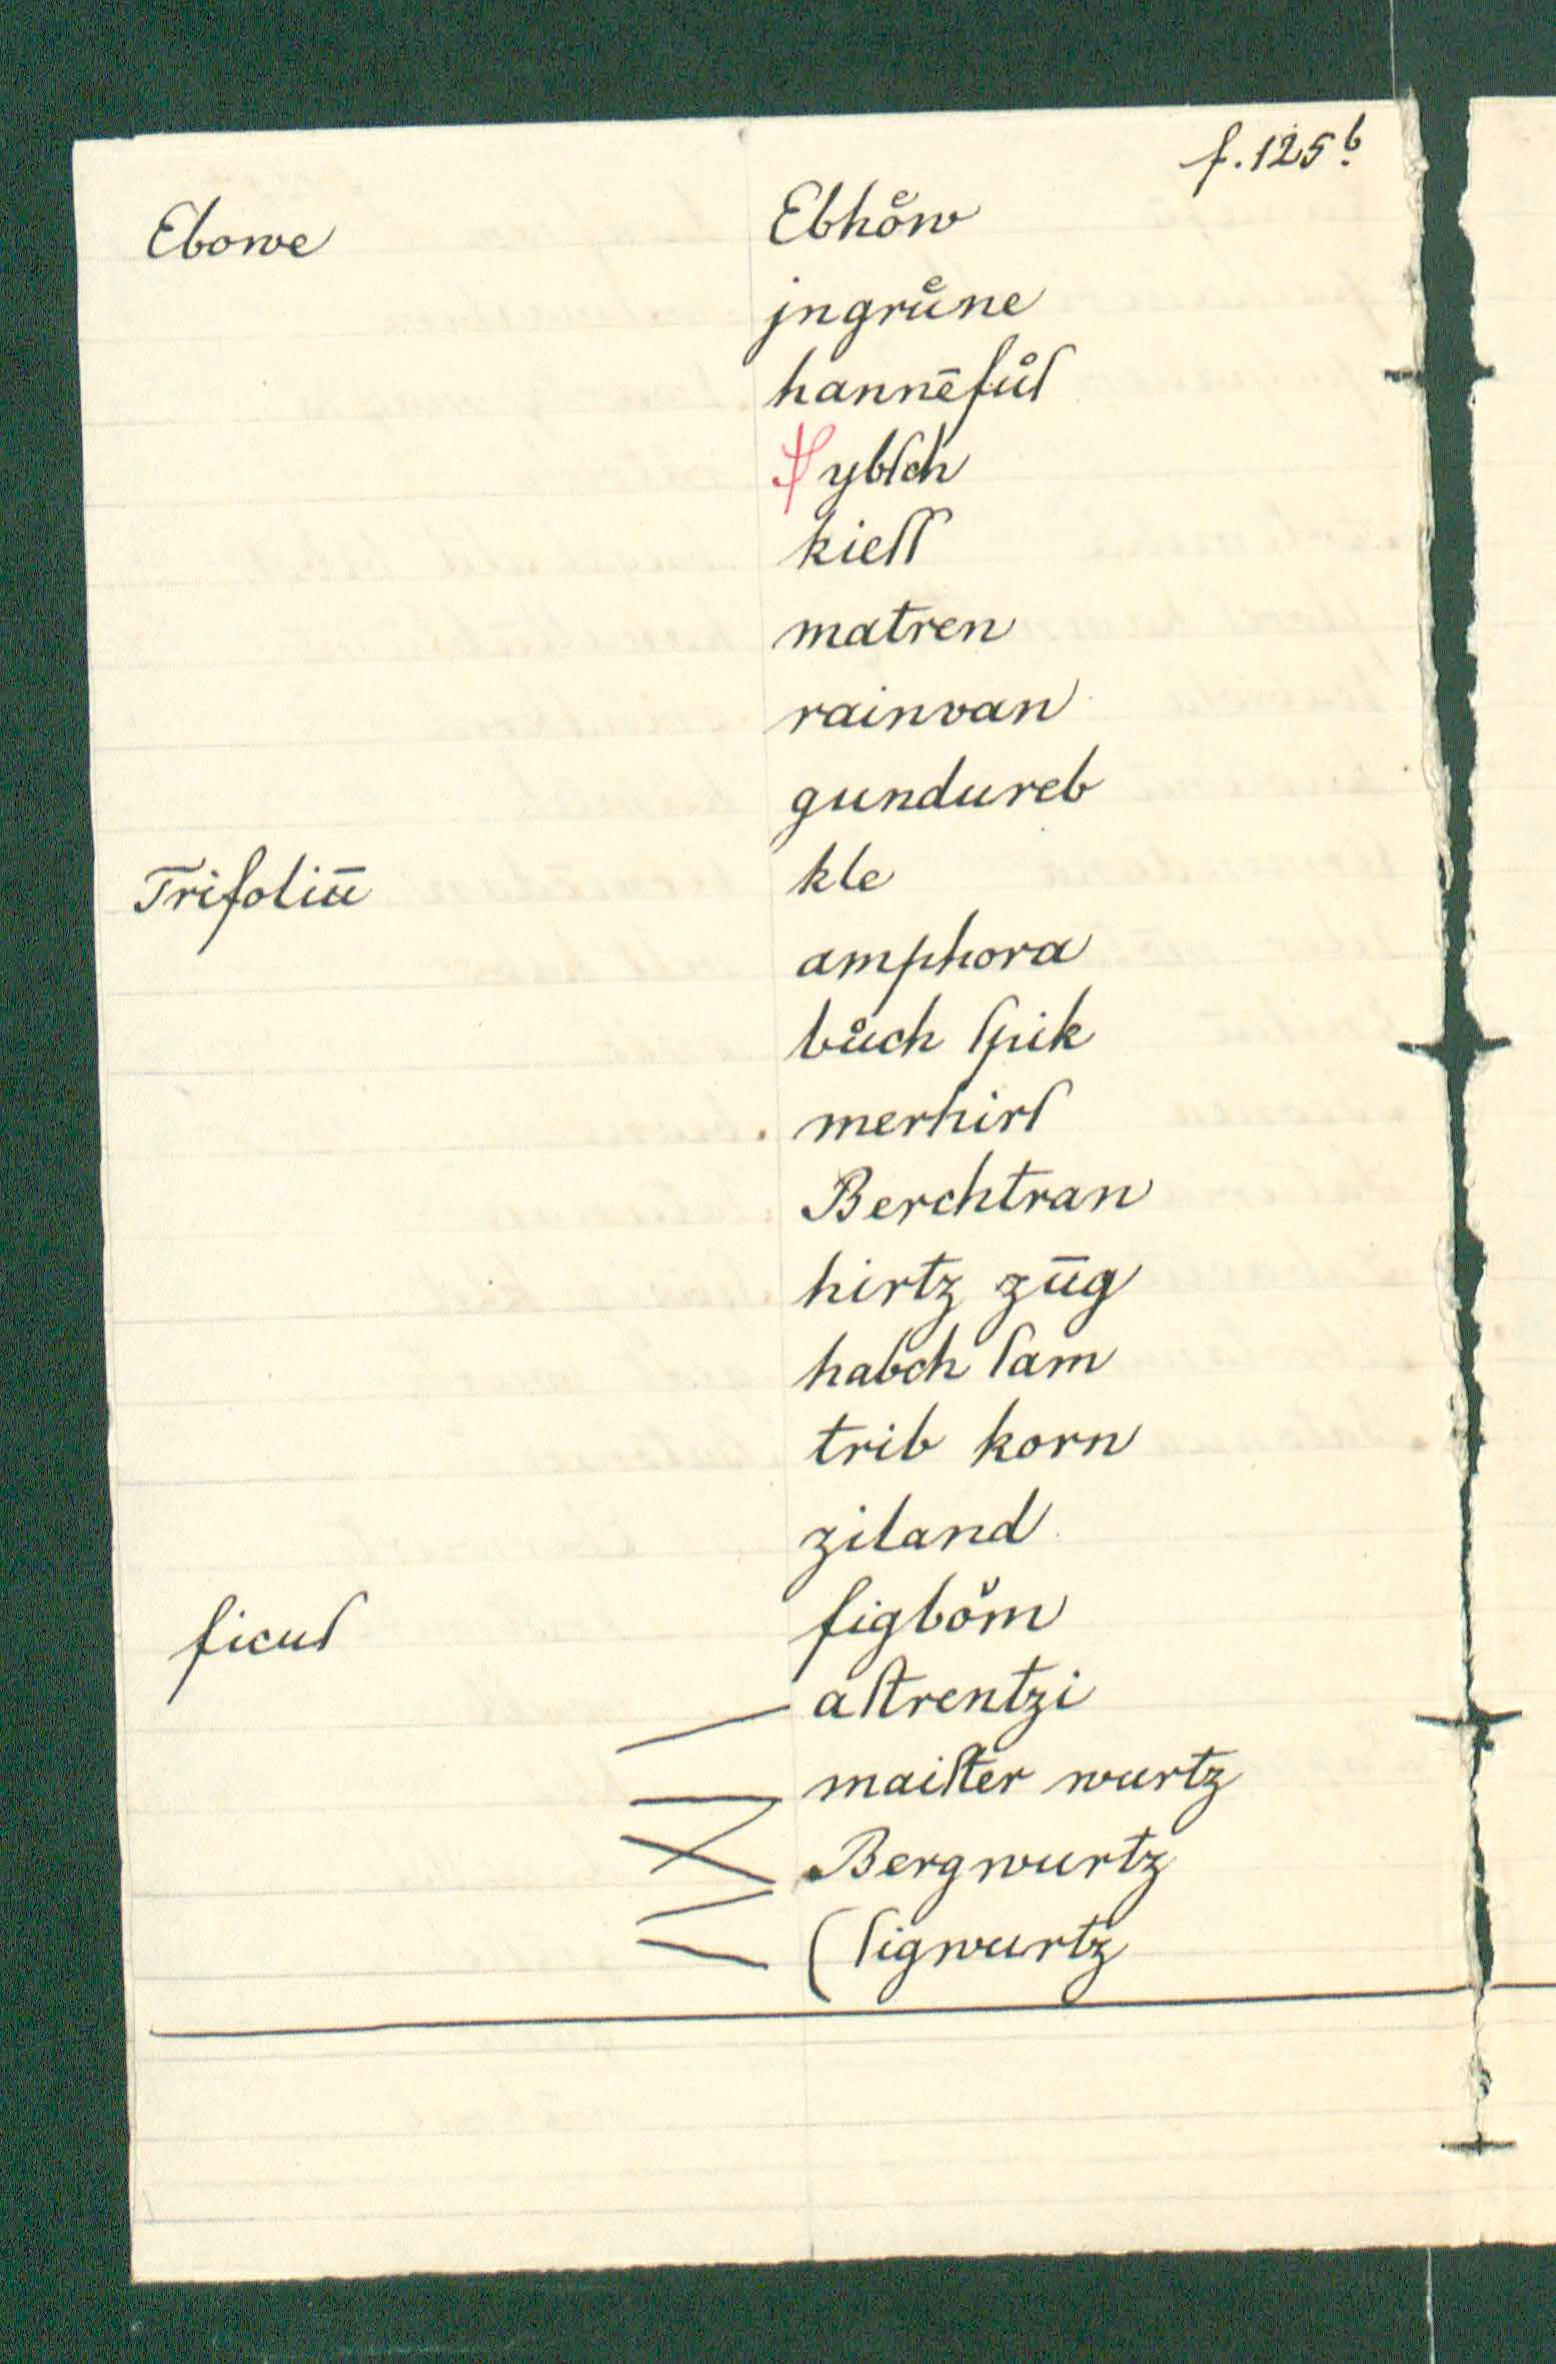 f. 125 b.
Ebowe Ebhoͤw
jngruͤne
hannēfuͦſ
ybſch
kieſſ
matren
rainvan
gundureb
Trifoliū kle
amphora
buͦch ſpik
merhirſ
Berchtran
hirtz zūg
habch ſam
trib korn
ziland
ficuſ figboͮm
aſtrentzi
maiſter wurtz
Bergwurtz
(ſigwurtz